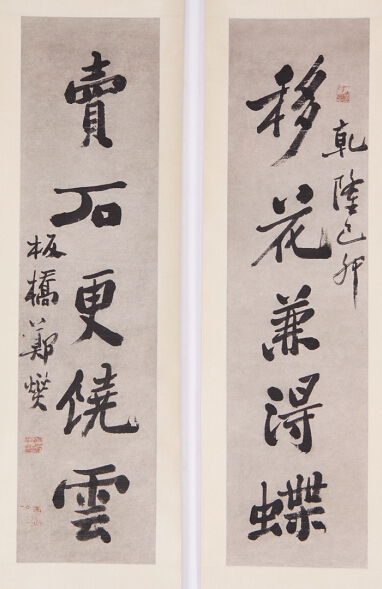 乾隆己卯
移花兼得蝶
賣石更饒雲
板橋鄭燮